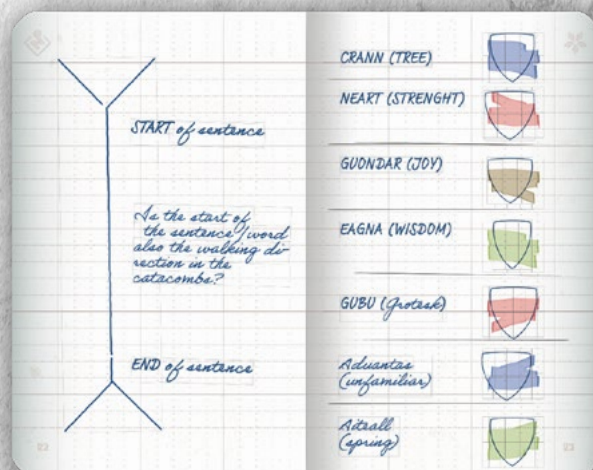 START of sentence
Is the start of
the sentence/word
also the walking di-
rection in the
catacombs?
END of sentence
22
CRANN (TREE)
NEART (STRENGHT)
GUONDAR (JOY)
EAGNA (WISDOM)
GUBU (Grotesk)
Aduantas
(unfamiliar)
Aiteall
(spring)
23